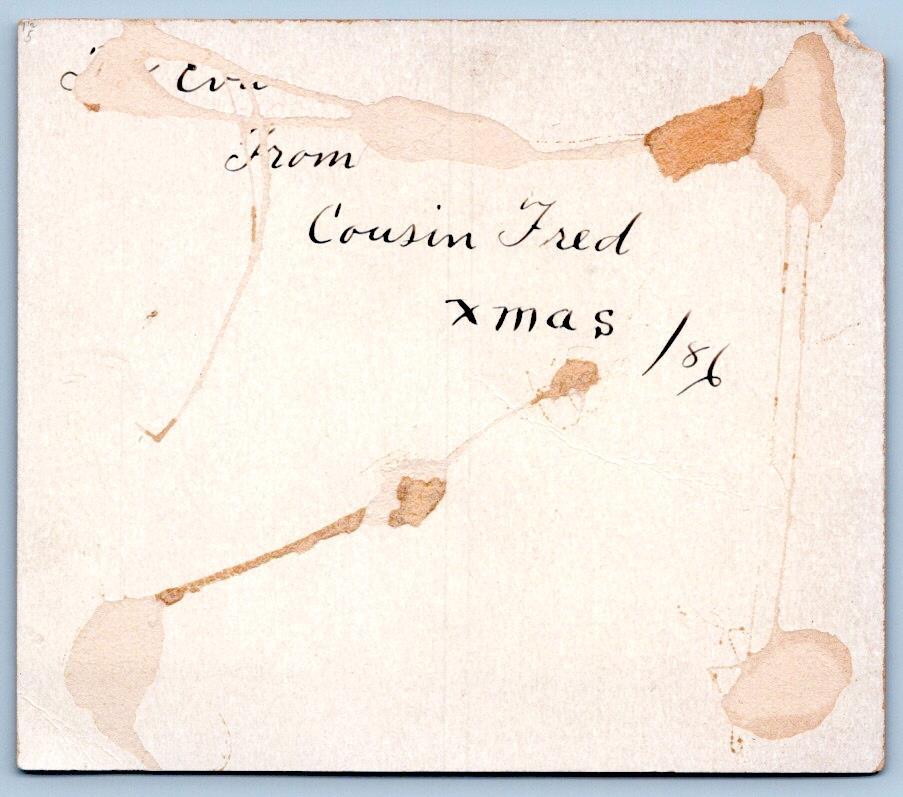 Eva
From
Cousin Fred
xmas /86